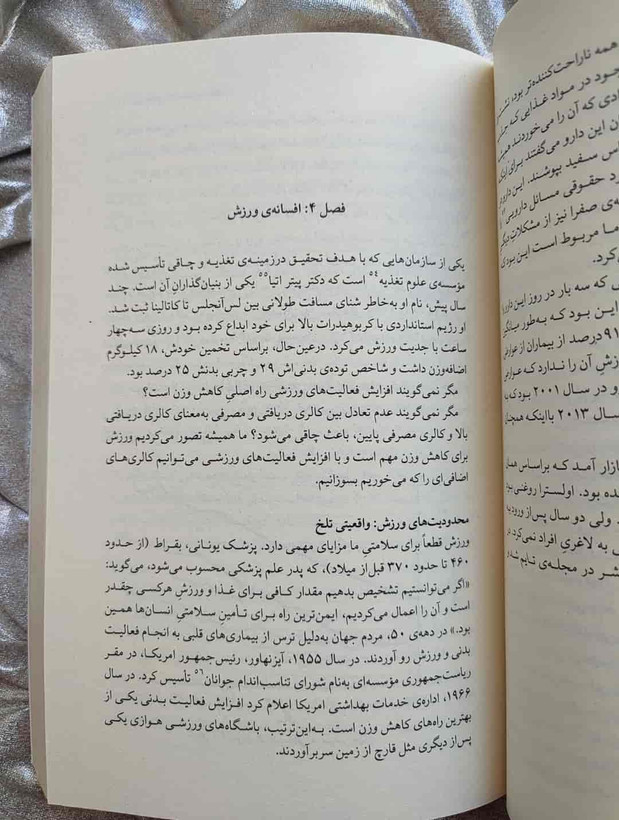 فصل ۴: افسانه‌ی ورزش
یکی از سازمان‌هایی که با هدف تحقیق درزمینه‌ی تغذیه و چاقی تأسیس شده
مؤسسه‌ی علوم تغذیه۵۴ است که دکتر پیتر اتیا۵۵ یکی از بنیان‌گذاران آن است. چند
سال پیش، نام او به‌خاطر شنای مسافت طولانی بین لس‌آنجلس تا کاتالینا ثبت شد.
او رژیم استانداردی با کربوهیدرات بالا برای خود ابداع کرده بود و روزی سه‌چهار
ساعت با جدیت ورزش می‌کرد. درعین‌حال، براساس تخمین خودش، ۱۸ کیلوگرم
اضافه‌وزن داشت و شاخص توده‌ی بدنی‌اش ۲۹ و چربی بدنش ۲۵ درصد بود.
مگر نمی‌گویند افزایش فعالیت‌های ورزشی راه اصلیِ کاهش وزن است؟
مگر نمی‌گویند عدم تعادل بین کالری دریافتی و مصرفی به‌معنای کالری دریافتی
بالا و کالری مصرفی پایین، باعث چاقی می‌شود؟ ما همیشه تصور می‌کردیم ورزش
برای کاهش وزن مهم است و با افزایش فعالیت‌های ورزشی می‌توانیم کالری‌های
اضافی‌ای را که می‌خوریم بسوزانیم.
محدودیت‌های ورزش: واقعیتی تلخ
ورزش قطعاً برای سلامتی ما مزایای مهمی دارد. پزشک یونانی، بقراط (از حدود
۴۶۰ تا حدود ۳۷۰ قبل‌از میلاد)، که پدر علم پزشکی محسوب می‌شود، می‌گوید:
«اگر می‌توانستیم تشخیص بدهیم مقدار کافی برای غذا و ورزشِ هرکسی چقدر
است و آن را اعمال می‌کردیم، ایمن‌ترین راه برای تأمینِ سلامتیِ انسان‌ها همین
بود.» در دهه‌ی ۵۰، مردم جهان به‌دلیل ترس از بیماری‌های قلبی به انجام فعالیت
بدنی و ورزش رو آوردند. در سال ۱۹۵۵، آیزنهاور، رئیس‌جمهور امریکا، در مقر
ریاست‌جمهوری مؤسسه‌ای به‌نام شورای تناسب‌اندام جوانان۵۶ تأسیس کرد. در سال
۱۹۶۶، اداره‌ی خدمات بهداشتی امریکا اعلام کرد افزایش فعالیت بدنی یکی از
بهترین راه‌های کاهش وزن است. به‌این‌ترتیب، باشگاه‌های ورزشیِ هوازی یکی
پس‌از دیگری مثل قارچ از زمین سربرآوردند.
همه ناراحت‌کننده‌تر بود،
جود در مواد غذایی که
ادی که آن را می‌خوردند
ن این دارو می‌گفتند برای
اس سفید بپوشند. این
د حقوقی مسائل دارویی
ه‌ی صفرا نیز از مشکلات دیگر
ما مربوط است این بود که
کرد.
ی که سه بار در روز این دارو
این بود که به‌طور میانگین
۹۱درصد از بیماران از عوارض
زش آن را ندارد که عوارض
و در سال ۲۰۰۱ بود که
سال ۲۰۱۳ بااینکه همچنان
ازار آمد که براساس همان
ده بود. اولسترا روغنی بود
ولی دو سال پس‌از ورود به
ی به لاغریِ افراد نمی‌کرد. در
شر در مجله‌ی تایم شد و